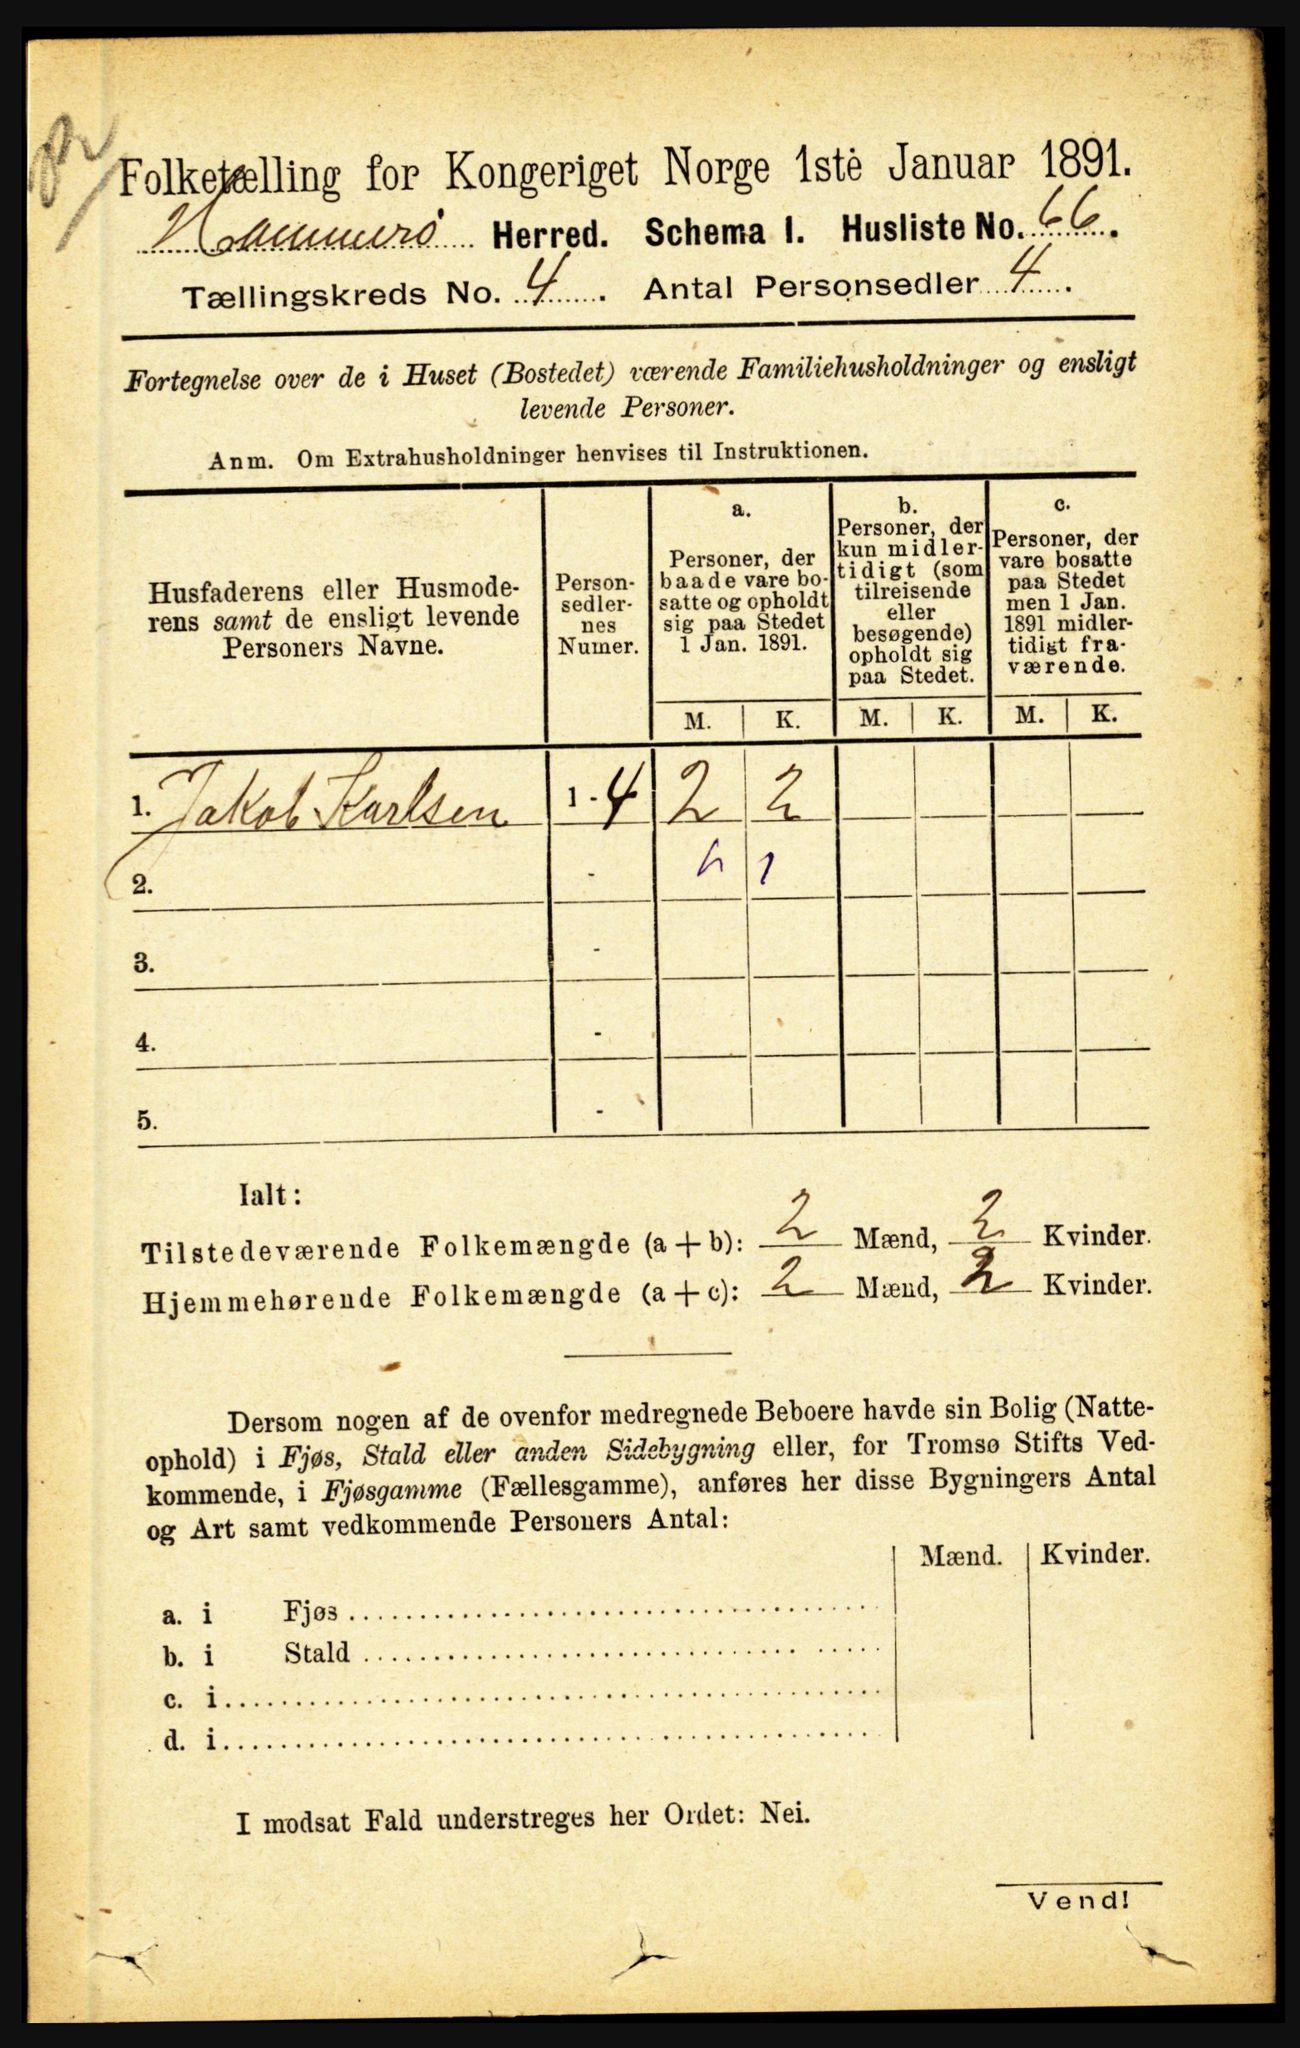 Folketælling for Kongeriget Norge 1ste Januar 1891.
Hammerø Herred. Schema I. Husliste No. 66.
Tællingskreds No. 4. Antal Personsedler 4.
Fortegnelse over de i Huset (Bostedet) værende Familiehusholdninger og ensligt
levende Personer.
Anm. Om Extrahusholdninger henvises til Instruktionen.
Husfaderens eller Husmode-
rens samt de ensligt levende
Personers Navne.
Person-
sedler-
nes
Numer.
a.
Personer, der
baade vare bo-
satte og opholdt
sig paa Stedet
1 Jan. 1891.
b.
Personer, der
kun midler-
tidigt (som
tilreisende
eller
besøgende)
opholdt sig
paa Stedet.
c.
Personer, der
vare bosatte
paa Stedet
men 1 Jan.
1891 midler-
tidigt fra-
værende.
M. K. M. K. M. K.
1. Jakob Karlsen 1 - 4 2 2
2. - 1
3. -
4. -
5. -
Ialt:
Tilstedeværende Folkemængde (a + b): 2 Mænd, 2 Kvinder.
Hjemmehørende Folkemængde (a + c): 2 Mænd, 2 Kvinder.
Dersom nogen af de ovenfor medregnede Beboere havde sin Bolig (Natte-
ophold) i Fjøs, Stald eller anden Sidebygning eller, for Tromsø Stifts Ved-
kommende, i Fjøsgamme (Fællesgamme), anføres her disse Bygningers Antal
og Art samt vedkommende Personers Antal:
Mænd. Kvinder.
a. i Fjøs
b. i Stald
c. i
d. i
I modsat Fald understreges her Ordet: Nei.
Vend!